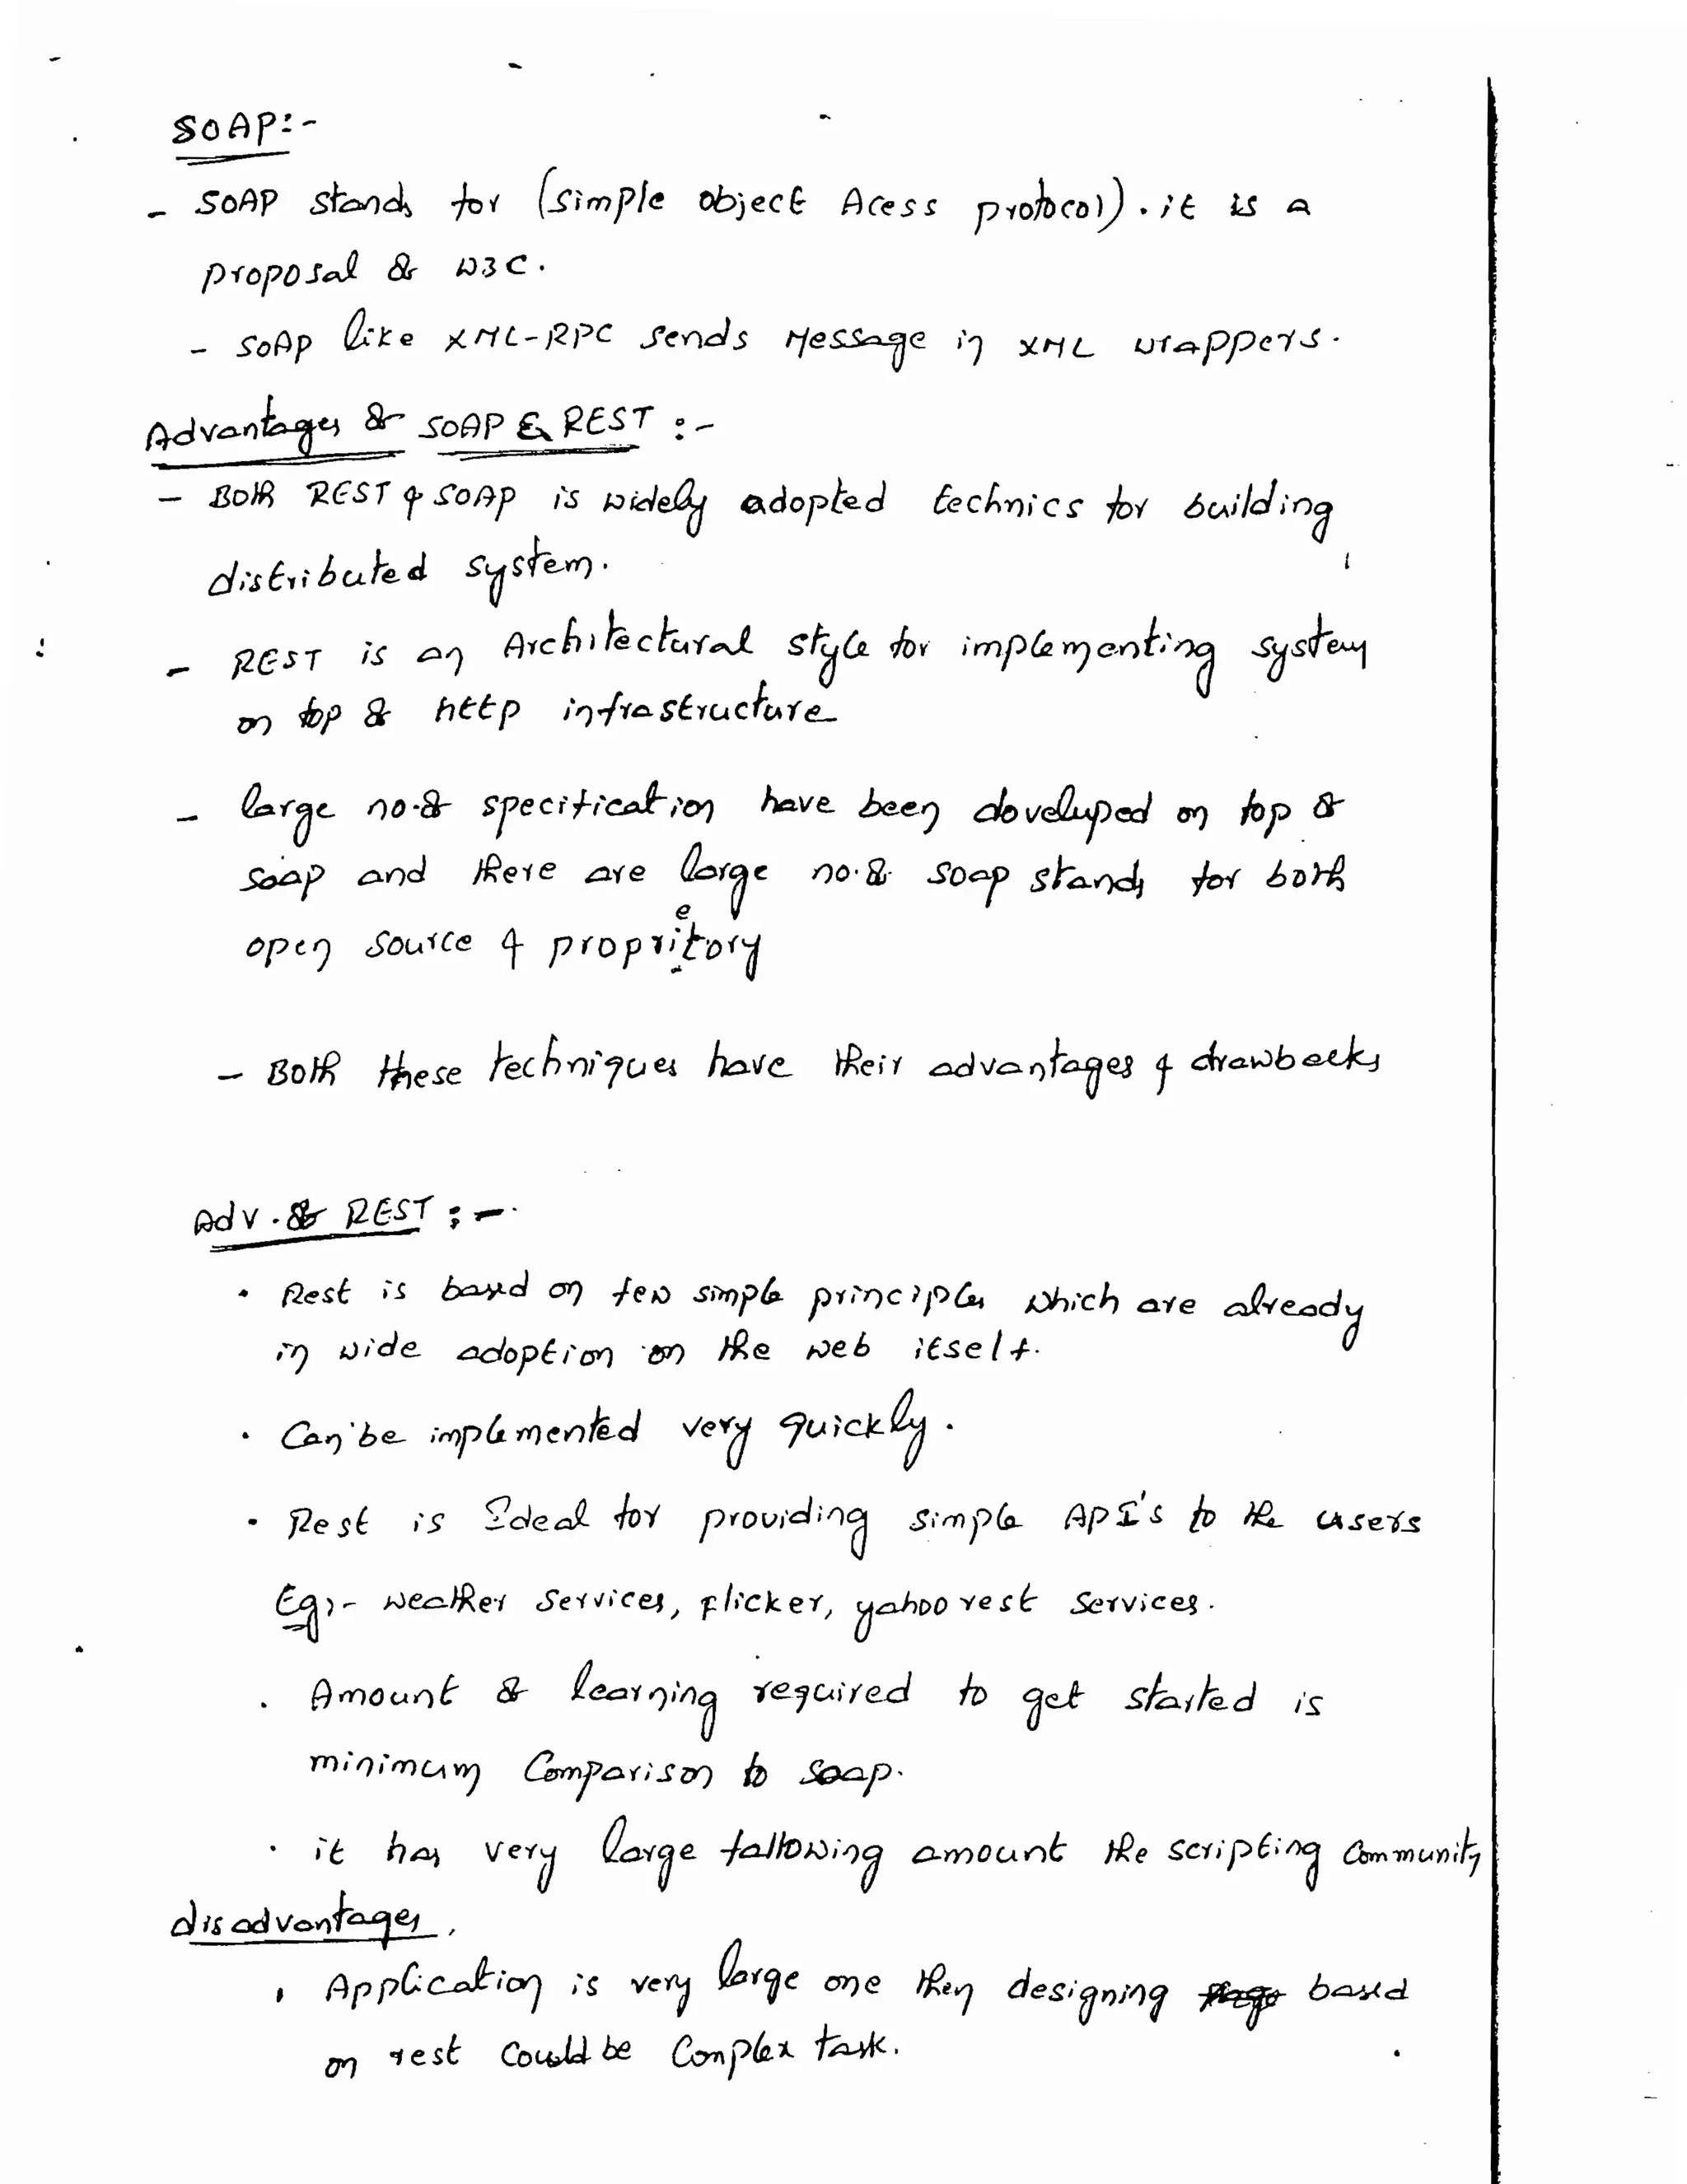 SOAP:-
- SOAP stands for (simple object Acess protocol). it is a
proposal of W3C.
- SOAP like XML-RPC sends Message in XML wrappers.
Advantages of SOAP & REST :-
- Both REST & SOAP is widely adopted technics for building
distributed system.
- REST is an Architectural style for implementing system
on top of http infrastructure
- large no.of specification have been doveluped on top of
soap and there are large no.of soap stands for both
open source & proprietory
- Both these techniques have their advantages & drawbacks
Adv. of REST :-
. Rest is based on few simple principles which are already
in wide adoption on the web itself.
. Can be implemented very quickly.
. Rest is Ideal for providing simple API's to the users
Eg:- weather services, Flicker, yahoo rest services.
. Amount of learning required to get started is
minimum Comparison to soap.
. it has very large fallowing amount the scripting Community
disadvantages.
. Application is very large one then designing based
on rest could be Complex task.